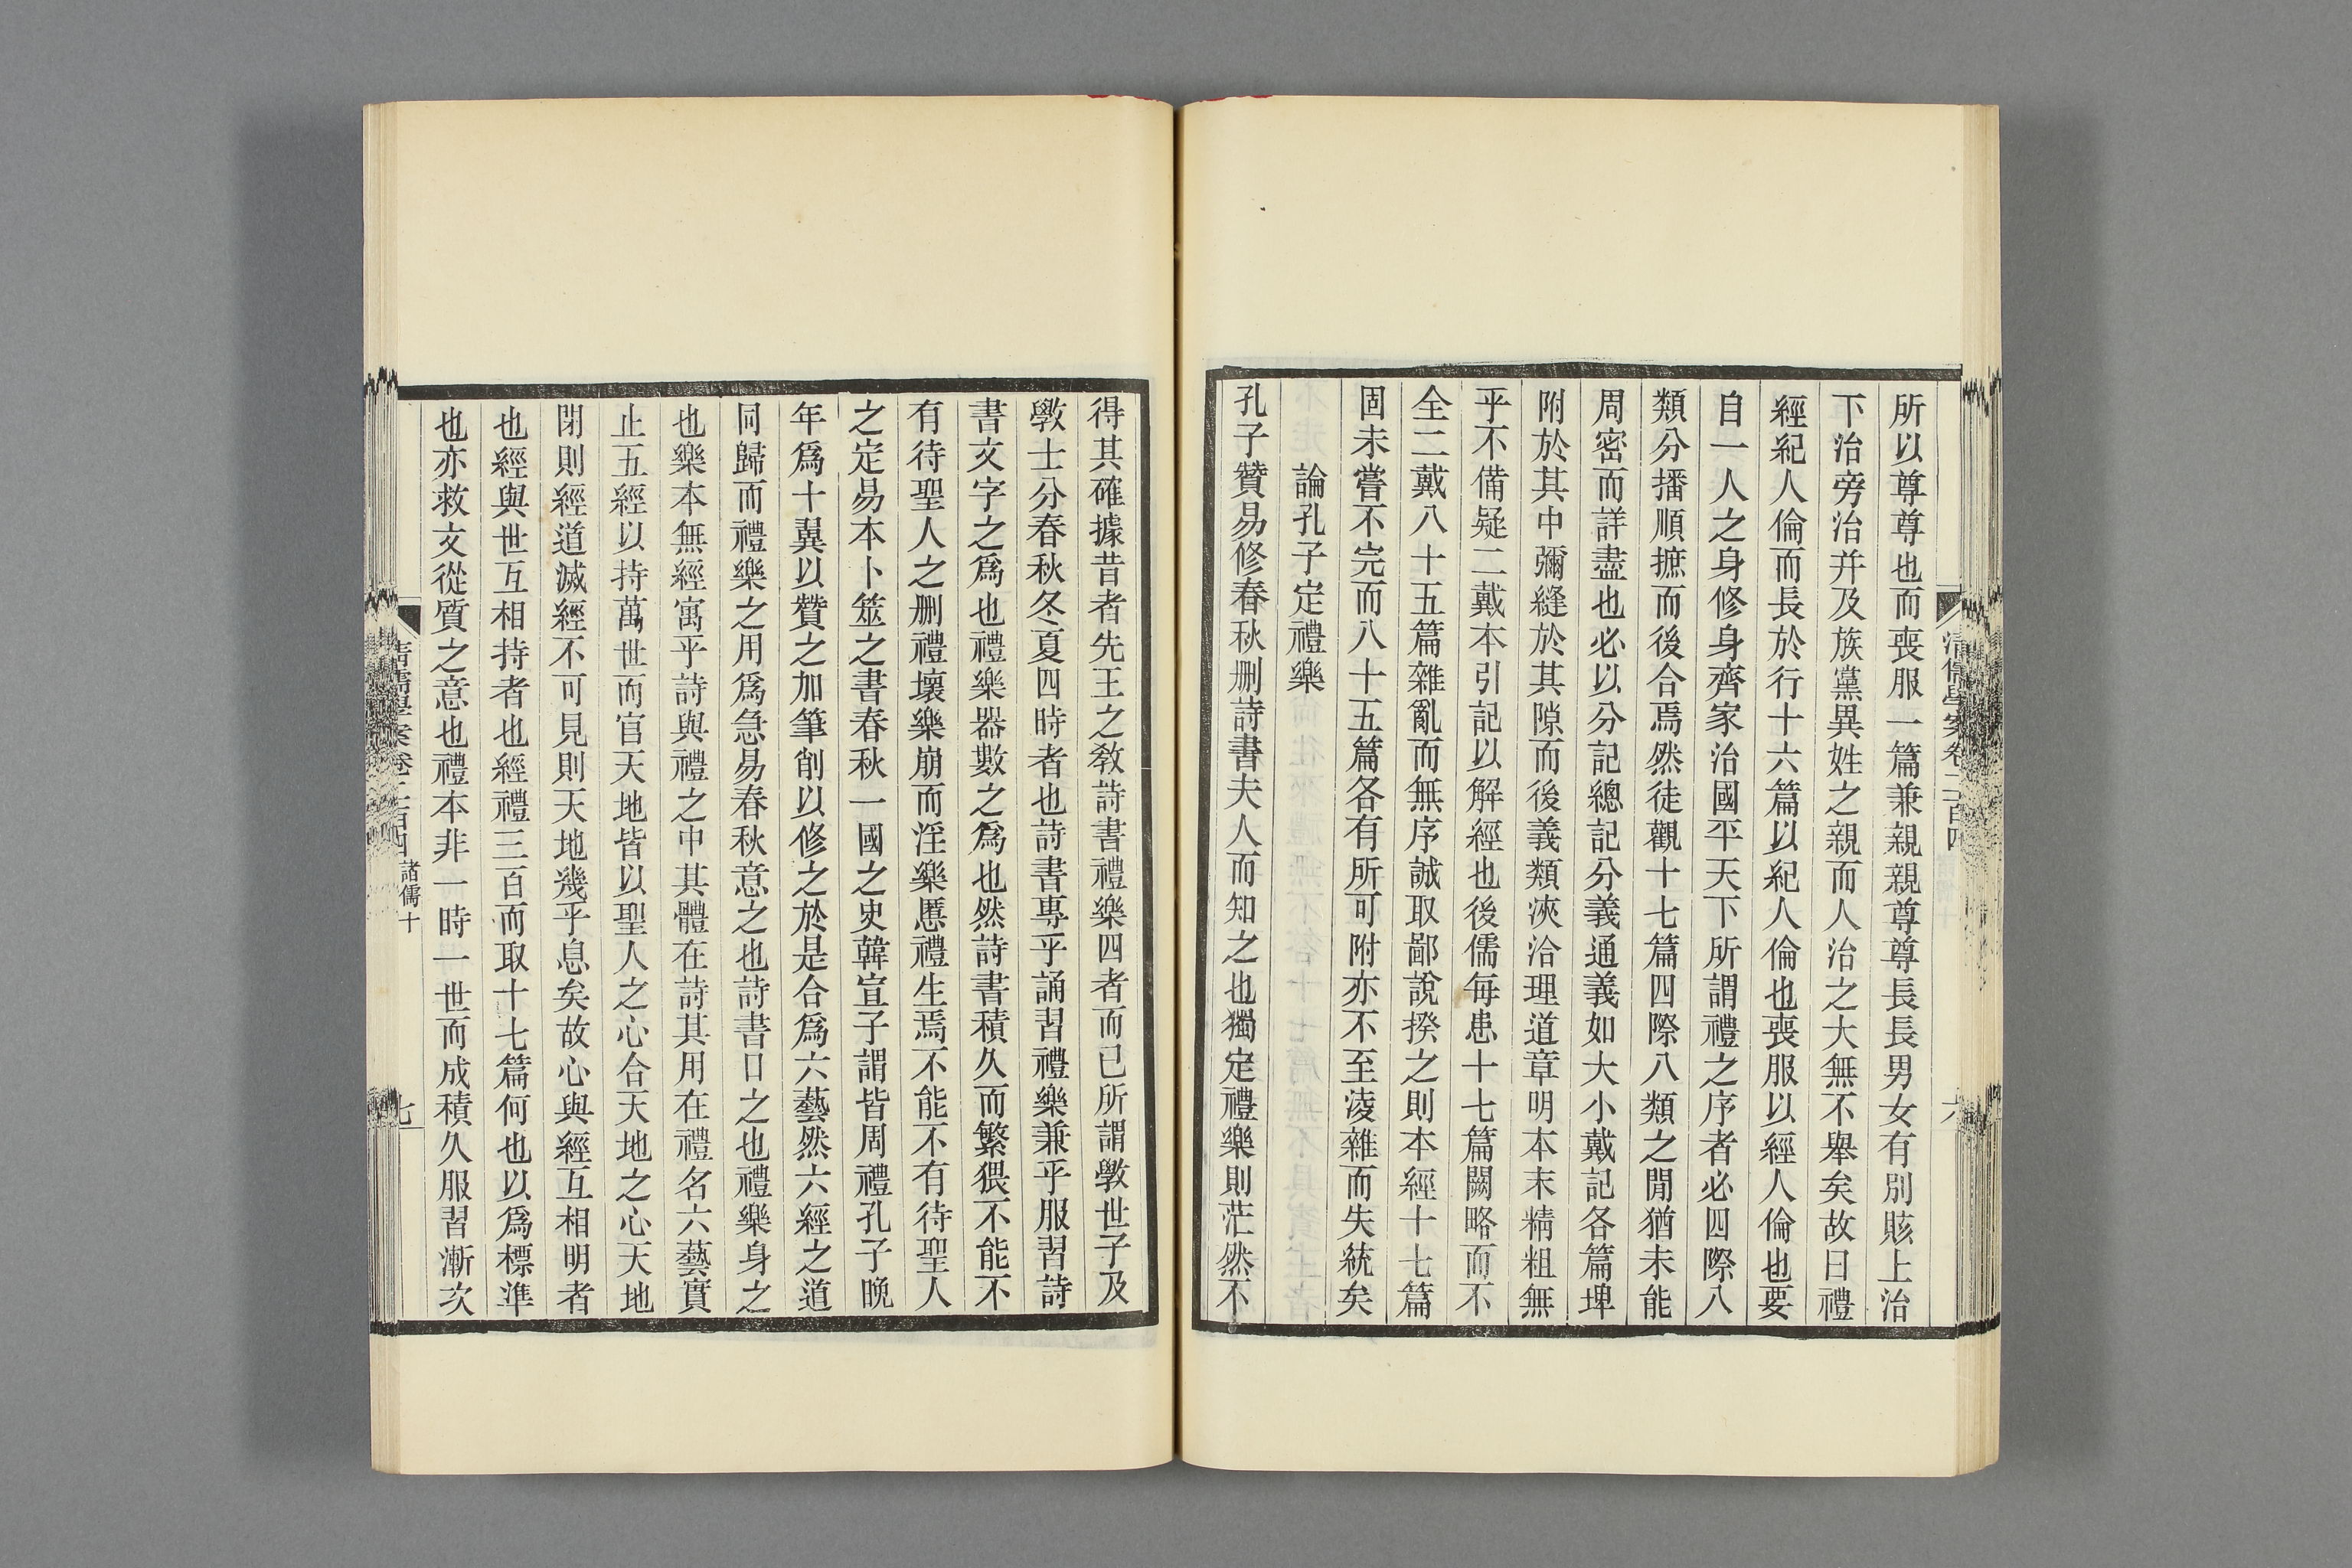 清儒學案卷二百四
六
所以尊尊也而喪服一篇兼親親尊尊長長男女有別賅上治
下治旁治幷及族黨異姓之親而人治之大無不舉矣故曰禮
經紀人倫而長於行十六篇以紀人倫也喪服以經人倫也要
自一人之身修身齊家治國平天下所謂禮之序者必四際八
類分播順摭而後合焉然徒觀十七篇四際八類之閒猶未能
周密而詳盡也必以分記總記分義通義如大小戴記各篇埤
附於其中彌縫於其隙而後義類浹洽理道章明本末精粗無
乎不備疑二戴本引記以解經也後儒每患十七篇闕略而不
全二戴八十五篇雜亂而無序誠取鄙說揆之則本經十七篇
固未嘗不完而八十五篇各有所可附亦不至淩雜而失統矣
論孔子定禮樂
孔子贊易修春秋删詩書夫人而知之也獨定禮樂則茫然不
得其確據昔者先王之敎詩書禮樂四者而已所謂斆世子及
斆士分春秋冬夏四時者也詩書專乎誦習禮樂兼乎服習詩
書文字之爲也禮樂器數之爲也然詩書積久而繁猥不能不
有待聖人之删禮壞樂崩而淫樂慝禮生焉不能不有待聖人
之定易本卜筮之書春秋一國之史韓宣子謂皆周禮孔子晚
年爲十翼以贊之加筆削以修之於是合爲六藝然六經之道
同歸而禮樂之用爲急易春秋意之也詩書口之也禮樂身之
也樂本無經寓乎詩與禮之中其體在詩其用在禮名六藝實
止五經以持萬世而官天地皆以聖人之心合天地之心天地
閉則經道滅經不可見則天地幾乎息矣故心與經互相明者
也經與世互相持者也經禮三百而取十七篇何也以爲標準
也亦救文從質之意也禮本非一時一世而成積久服習漸次
清儒學案卷二百四 諸儒十
七